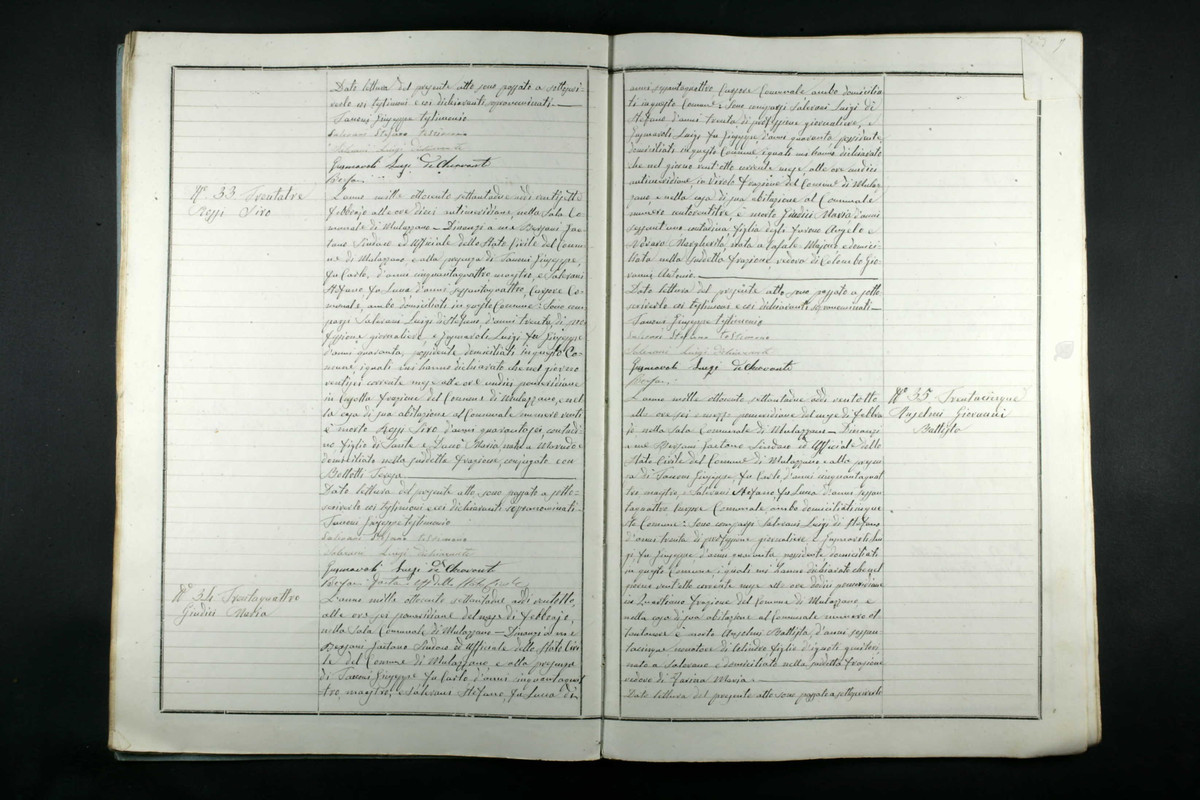 Data lettura del presente atto sono passato a sottoscri-
verlo coi testimoni e coi dichiaranti sopranominati.—
Tansini Giuseppe testimonio
Salvani Stefano testimonio
Salvani Luigi dichiarante
Luigi dichiarante
N° 33 Trentatre
Rossi Siro
L'anno mille ottocento settantadue addì ventisette
Febbrajo alle ore dieci antimeridiane, nella Sala Co-
munale di Mulazzano — Dinanzi a me Bassani Gae-
tano Sindaco ed Ufficiale dello Stato Civile del Comu-
ne di Mulazzano, e alla presenza di Tansini Giuseppe,
fu Carlo, d'anni cinquantaquattro maestro, e Salvani
Stefano fu Luca d'anni sessantaquattro, Cursore Co-
munale, ambo domiciliati in questo Comune: Sono com-
parsi Salvani Luigi di Stefano, d'anni trenta, di pro-
fessione giornaliere, e Luigi fu Giuseppe
d'anni quaranta, possidente domiciliati in questo Co-
mune, i quali mi hanno dichiarato che nel giorno
ventisei corrente mese alle ore undici pomeridiane
in Cassotta frazione del Comune di Mulazzano, e nel-
la casa di sua abitazione al Comunale numero venti
è morto Rossi Siro d'anni quarantasei, contadi-
no figlio di Sante e Maria, nato a
domiciliato nella suddetta frazione, conjugato con
Teresa
Data lettura del presente atto sono passato a sotto-
scriverlo coi testimoni e coi dichiaranti sopranominati.
Tansini Giuseppe testimonio
Salvani Stefano testimonio
Salvani Luigi dichiarante
Luigi dichiarante
Bassani Gaetano Uff. dello Stato Civile
N° 34 Trentaquattro
Giudici Maria
L'anno mille ottocento settantadue addì ventotto,
alle ore sei pomeridiane del mese di Febbrajo,
nella Sala Comunale di Mulazzano — Dinanzi a me
Bassani Gaetano Sindaco ed Ufficiale dello Stato Civi-
le del Comune di Mulazzano e alla presenza
di Tansini Giuseppe fu Carlo d'anni cinquantaquat-
tro, maestro, e Salvani Stefano, fu Luca di
anni sessantaquattro Cursore Comunale ambo domicilia-
ti in questo Comune: Sono comparsi Salvani Luigi di
Stefano d'anni trenta di professione giornaliere, e
Luigi fu Giuseppe d'anni quaranta, possidente
domiciliati in questo Comune, i quali mi hanno dichiarato
che nel giorno ventotto corrente mese alle ore undici
antimeridiane, in Virolo frazione del Comune di Mulaz-
zano, e nella casa di sua abitazione al Comunale
numero centoventitre, è morta Giudici Maria d'anni
sessantuno contadina figlia degli furono Angelo e
Margherita, nata a Casale Majocco e domici-
liata nella suddetta frazione, vedova di Colombo Gio-
vanni Antonio.
Data lettura del presente atto sono passato a sotto-
scriverlo coi testimoni e coi dichiaranti sopranominati—
Tansini Giuseppe testimonio
Salvani Stefano testimone
Salvani Luigi dichiarante
Luigi dichiarante
Bassani
N° 35 Trentacinque
Anselmi Giovanni
Battista
L'anno mille ottocento settantadue addì ventotto
alle ore sei e mezza pomeridiane del mese di Febbra-
jo nella Sala Comunale di Mulazzano — Dinanzi
a me Bassani Gaetano Sindaco ed Ufficiale dello
Stato Civile del Comune di Mulazzano e alla presen-
za di Tansini Giuseppe, fu Carlo, d'anni cinquantaquat-
tro, maestro, e Salvani Stefano, fu Luca d'anni sessan-
taquattro Cursore Comunale, ambo domiciliati in que-
sto Comune: Sono comparsi Salvani Luigi di Stefano
d'anni trenta di professione giornaliere, e Lui-
gi, fu Giuseppe d'anni quaranta, possidente domiciliati
in questo Comune, i quali mi hanno dichiarato che nel
giorno ventotto corrente mese alle ore dodici pomeridiane
in Quartirano frazione del Comune di Mulazzano, e
nella casa di sua abitazione al Comunale numero ot-
tantanove è morto Anselmi Battista d'anni sessan-
tacinque figlio d'ignoti genitori,
nato a Salerano e domiciliato nella suddetta frazione
vedovo di Maria.—
Data lettura del presente atto sono passato a sottoscriverlo